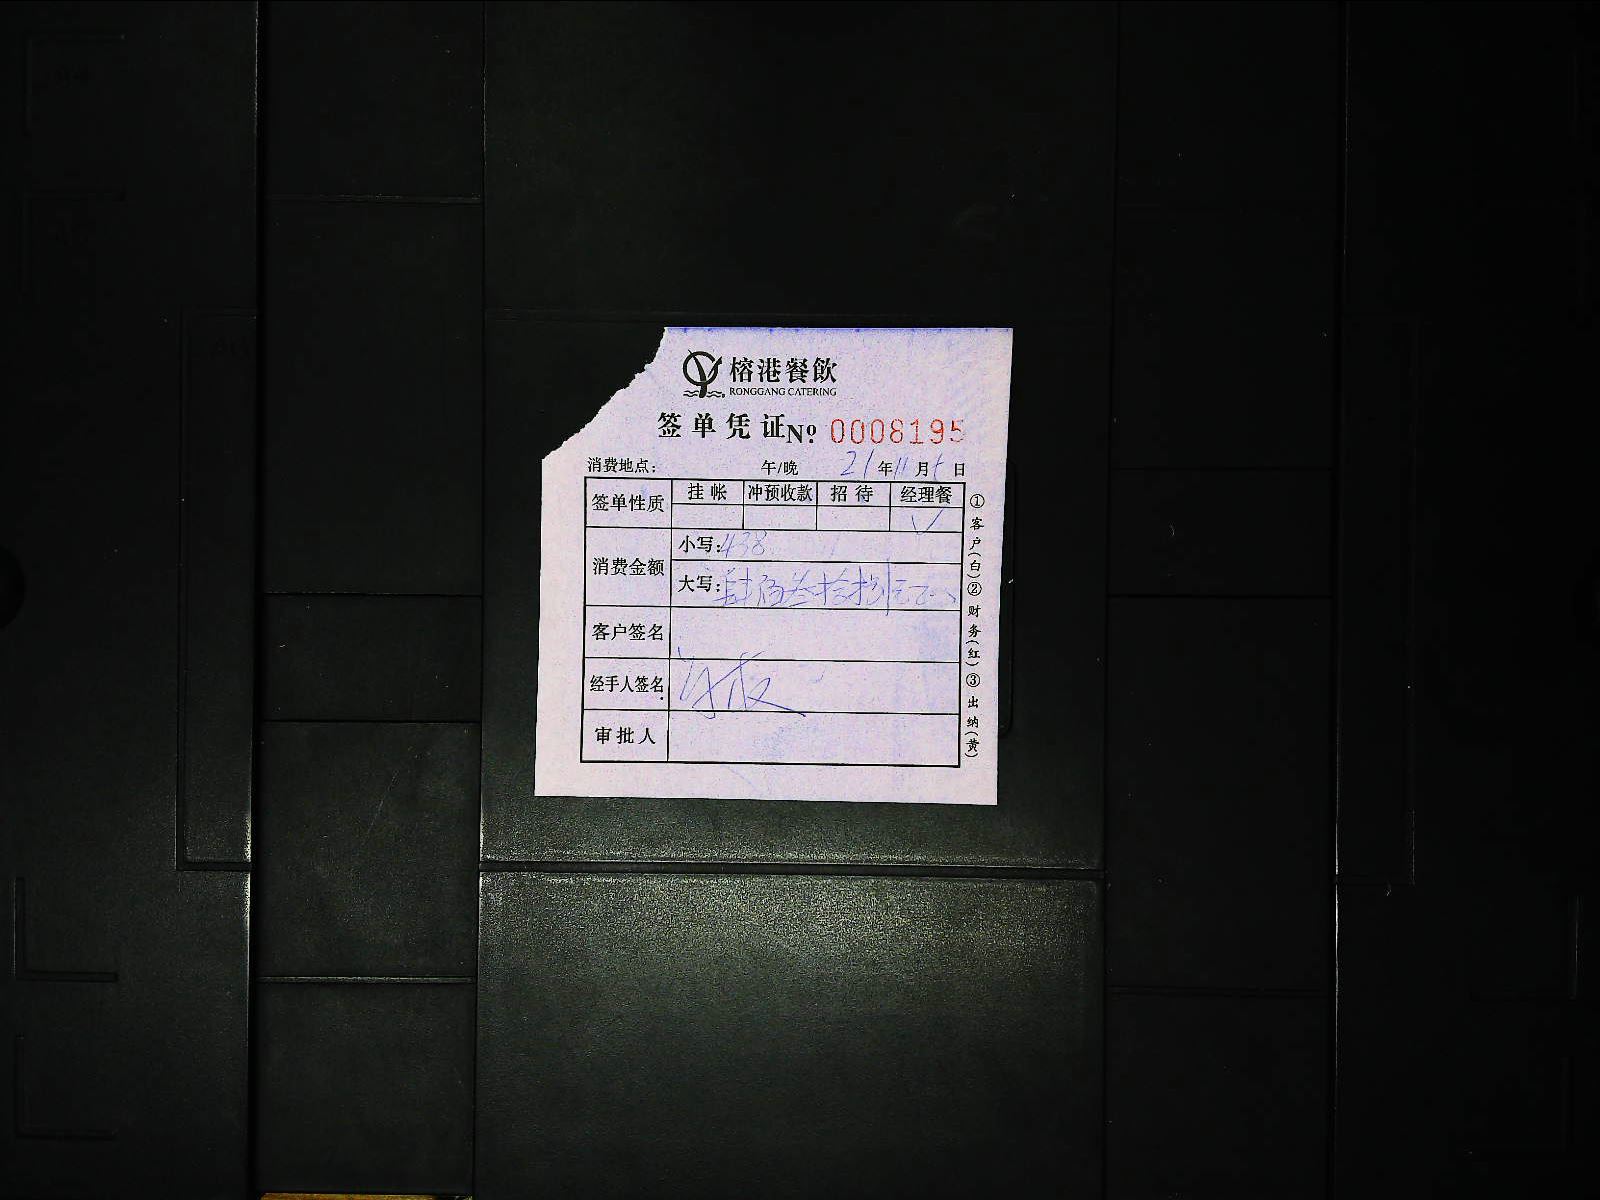 榕港餐飲
RONGGANG CATERING
签单凭证 Nº 0008195
消费地点： 午/晚 21年11月 日
签单性质 挂帐 冲预收款 招待 经理餐
✓
消费金额 小写：438
大写：肆佰叁拾捌元正
客户签名
经手人签名
审批人
①客户(白)②财务(红)③出纳(黄)